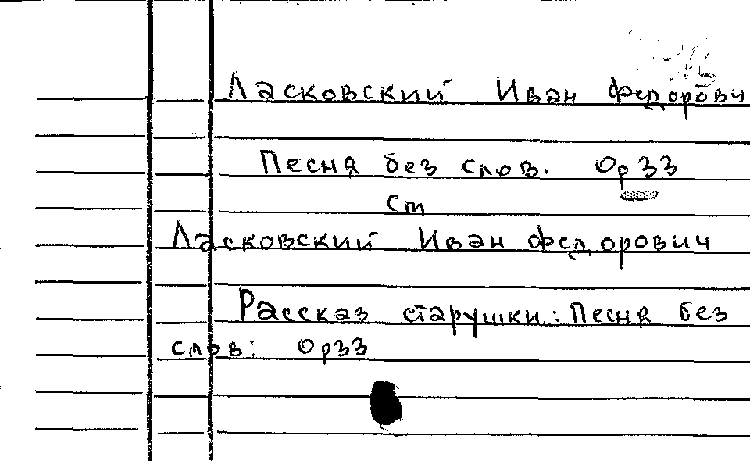 Ласковский Иван Федорови
Песня без слов. Ор 33
см
Ласковский Иван Федорович
Рассказ старушки: Песня без
слов: Ор33